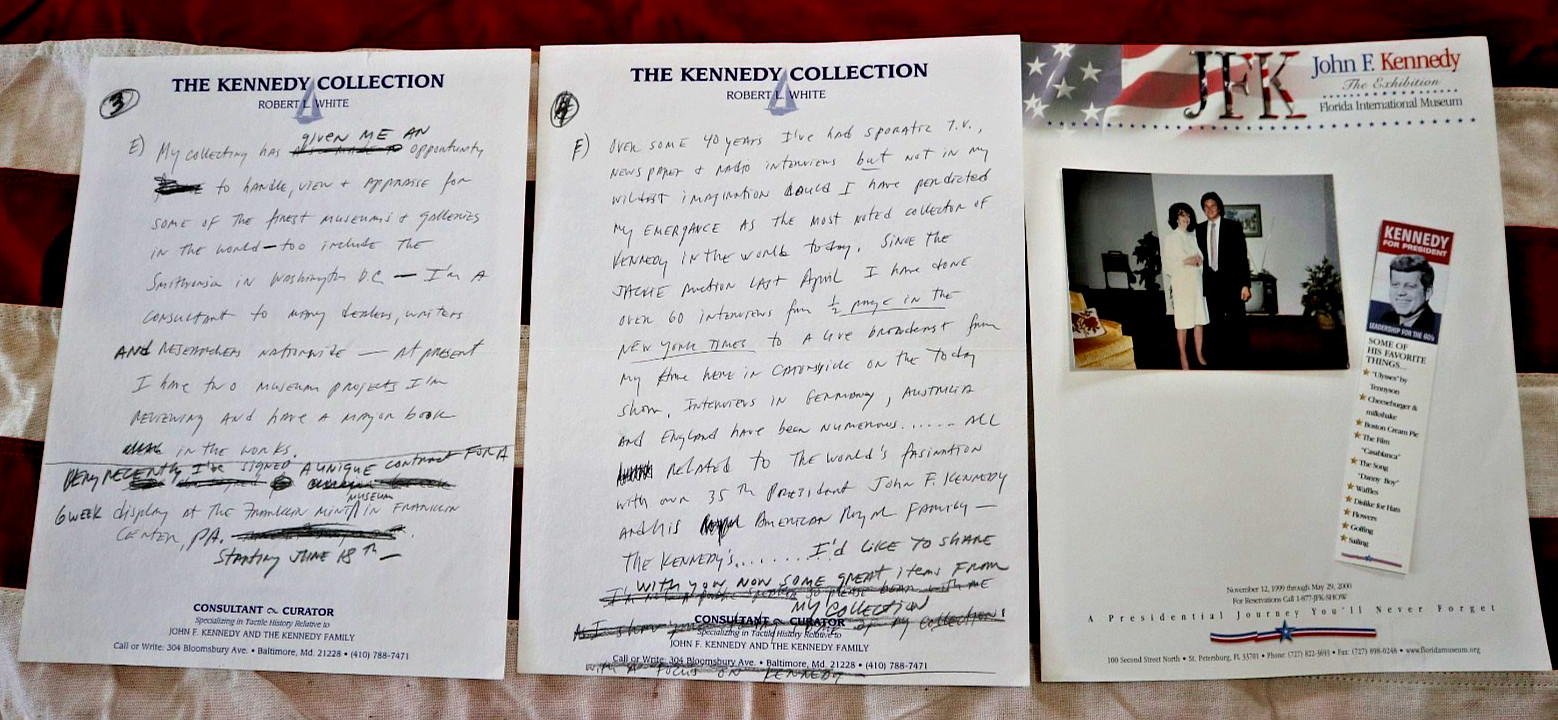 THE KENNEDY COLLECTION
ROBERT L. WHITE
3
E) My collecting has given me an opportunity
to handle, view + appraise for
some of the finest museums + galleries
in the world — too include the
in Washington D.C. — I'm a
consultant to many dealers, writers
AND RESEARCHERS NATIONWIDE — At present
I have two museum projects I'm
reviewing and have a mayor book
deal in the works.
Very recently I've signed a unique contract for a
6 week display at The Franklin Mint museum in Franklin
Center, PA.
Starting June 18th —
CONSULTANT ~ CURATOR
Specializing in Tactile History Relative to
JOHN F. KENNEDY AND THE KENNEDY FAMILY
Call or Write: 304 Bloomsbury Ave. • Baltimore, Md. 21228 • (410) 788-7471
THE KENNEDY COLLECTION
ROBERT L. WHITE
4
F) Over some 40 years I've had sporatic T.V.,
newspaper + radio interviews but not in my
wildest imagination could I have perdicted
my emergance as the most noted collector of
Kennedy in the world today. Since the
JACKIE Auction last April I have done
over 60 interviews from ½ page in the
New York Times to a live broadcast from
my home here in Catonsville on the Today
show. Interviews in Germany, Australia
and England have been numerous...... ALL
related to the world's fasination
with our 35th President John F. Kennedy
and his American Royal Family —
The Kennedy's....... I'd like to share
with you now some great items from
my collection
CONSULTANT ~ CURATOR
Specializing in Tactile History Relative to
JOHN F. KENNEDY AND THE KENNEDY FAMILY
Call or Write: 304 Bloomsbury Ave. • Baltimore, Md. 21228 • (410) 788-7471
with a focus on Kennedy
JFK
John F. Kennedy
The Exhibition
Florida International Museum
KENNEDY
FOR PRESIDENT
LEADERSHIP FOR THE 60's
SOME OF
HIS FAVORITE
THINGS...
"Ulysses" by
Tennyson
Cheeseburger &
milkshake
Boston Cream Pie
The Film
"Casablanca"
The Song
"Danny Boy"
Waffles
Dislike for Hats
Flowers
Golfing
Sailing
November 12, 1999 through May 29, 2000
For Reservations Call 1-877-JFK-SHOW
A Presidential Journey You'll Never Forget
100 Second Street North • St. Petersburg, FL 33701 • Phone: (727) 822-3693 • Fax: (727) 898-0248 • www.floridamuseum.org